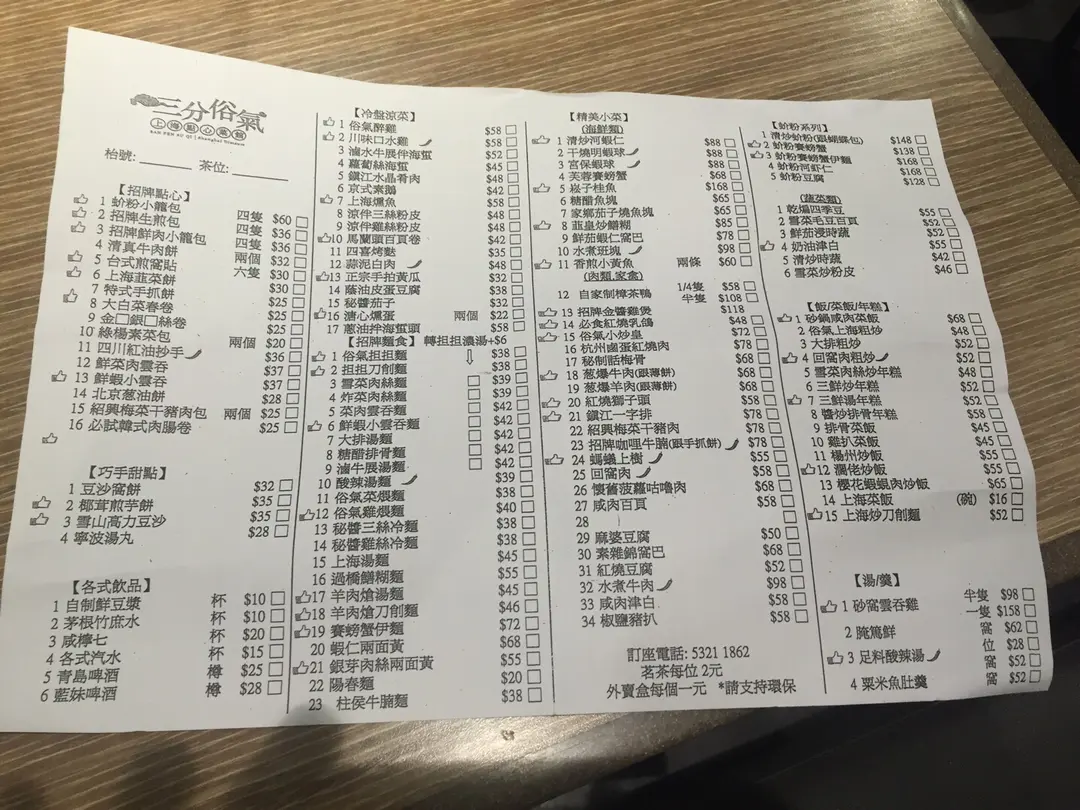 三分俗氣
上海點心菜館
SAN FEN SU QI | Shanghai Dimsum
枱號:______ 茶位:______
【招牌點心】
1 蚧粉小籠包 四隻 $60 □
2 招牌生煎包 四隻 $36 □
3 招牌鮮肉小籠包 四隻 $36 □
4 清真牛肉餅 兩個 $32 □
5 台式煎窩貼 六隻 $30 □
6 上海韮菜餅 $30 □
7 特式手抓餅 $25 □
8 大白菜春卷 $25 □
9 金□銀□絲卷 $25 □
10 綠楊素菜包 兩個 $20 □
11 四川紅油抄手 $36 □
12 鮮菜肉雲吞 $37 □
13 鮮蝦小雲吞 $37 □
14 北京葱油餅 $28 □
15 紹興梅菜干豬肉包 兩個 $25 □
16 必試韓式肉腸卷 $25 □
【巧手甜點】
1 豆沙窩餅 $32 □
2 椰茸煎芋餅 $35 □
3 雪山高力豆沙 $35 □
4 寧波湯丸 $28 □
【各式飲品】
1 自制鮮豆漿 杯 $10 □
2 茅根竹庶水 杯 $10 □
3 咸檸七 杯 $20 □
4 各式汽水 杯 $15 □
5 青島啤酒 樽 $25 □
6 藍妹啤酒 樽 $28 □
【冷盤涼菜】
1 俗氣醉雞 $58 □
2 川味口水雞 $58 □
3 滷水牛展伴海蜇 $52 □
4 蘿蔔絲海蜇 $45 □
5 鎮江水晶肴肉 $48 □
6 京式素鵝 $42 □
7 上海燻魚 $58 □
8 涼伴三絲粉皮 $48 □
9 涼伴雞絲粉皮 $48 □
10 馬蘭頭百頁卷 $42 □
11 四喜烤麩 $35 □
12 蒜泥白肉 $48 □
13 正宗手拍黃瓜 $32 □
14 蔭油皮蛋豆腐 $38 □
15 秘醬茄子 $32 □
16 溏心燻蛋 兩個 $22 □
17 葱油拌海蜇頭 $58 □
【招牌麵食】 轉担担濃湯+$6
1 俗氣担担麵 $38 □
2 担担刀削麵 $38 □
3 雪菜肉絲麵 □ $39 □
4 炸菜肉絲麵 □ $39 □
5 菜肉雲吞麵 □ $42 □
6 鮮蝦小雲吞麵 □ $42 □
7 大排湯麵 □ $42 □
8 糖醋排骨麵 □ $42 □
9 滷牛展湯麵 □ $42 □
10 酸辣湯麵 $39 □
11 俗氣菜煨麵 $38 □
12 俗氣雞煨麵 $40 □
13 秘醬三絲冷麵 $38 □
14 秘醬雞絲冷麵 $38 □
15 上海湯麵 $45 □
16 過橋鱔糊麵 $55 □
17 羊肉熗湯麵 $45 □
18 羊肉熗刀削麵 $46 □
19 賽螃蟹伊麵 $72 □
20 蝦仁兩面黃 $68 □
21 銀芽肉絲兩面黃 $55 □
22 陽春麵 $20 □
23 柱侯牛腩麵 $38 □
【精美小菜】
(海鮮類)
1 清炒河蝦仁 $88 □
2 干燒明蝦球 $88 □
3 宮保蝦球 $88 □
4 芙蓉賽螃蟹 $68 □
5 崧子桂魚 $168 □
6 糖醋魚塊 $65 □
7 家鄉茄子燒魚塊 $65 □
8 韮皇炒鱔糊 $85 □
9 鮮茄蝦仁窩巴 $78 □
10 水煮班塊 $98 □
11 香煎小黃魚 兩條 $60 □
(肉類,家禽)
12 自家制樟茶鴨 1/4隻 $58 □
半隻 $108 □
13 招牌金醬雞煲 $118
14 必食紅燒乳鴿 $48 □
15 俗氣小炒皇 $72 □
16 杭州鹵蛋紅燒肉 $78 □
17 秘制話梅骨 $68 □
18 葱爆牛肉(跟薄餅) $68 □
19 葱爆羊肉(跟薄餅) $68 □
20 紅燒獅子頭 $58 □
21 鎮江一字排 $78 □
22 紹興梅菜干豬肉 $58 □
23 招牌咖哩牛腩(跟手抓餅) $78 □
24 螞蟻上樹 $55 □
25 回窩肉 $58 □
26 懷舊菠蘿咕嚕肉 $68 □
27 咸肉百頁 $58 □
28 □
29 麻婆豆腐 $50 □
30 素雜錦窩巴 $68 □
31 紅燒豆腐 $52 □
32 水煮牛肉 $98 □
33 咸肉津白 $58 □
34 椒鹽豬扒 $58 □
訂座電話: 5321 1862
茗茶每位 2元
外賣盒每個一元 *請支持環保
【蚧粉系列】
1 清炒蚧粉(跟蝴蝶包) $148 □
2 蚧粉賽螃蟹 $138 □
3 蚧粉賽螃蟹伊麵 $168 □
4 蚧粉河虾仁 $168 □
5 蚧粉豆腐 $128 □
(蔬菜類)
1 乾煸四季豆 $55 □
2 雪菜毛豆百頁 $52 □
3 鮮茄浸時蔬 $52 □
4 奶油津白 $55 □
5 清炒時蔬 $42 □
6 雪菜炒粉皮 $46 □
【飯/菜飯/年糕】
1 砂鍋咸肉菜飯 $68 □
2 俗氣上海粗炒 $48 □
3 大排粗炒 $52 □
4 回窩肉粗炒 $52 □
5 雪菜肉絲炒年糕 $48 □
6 三鮮炒年糕 $52 □
7 三鮮湯年糕 $52 □
8 醬炒排骨年糕 $58 □
9 排骨菜飯 $45 □
10 雞扒菜飯 $45 □
11 楊州炒飯 $55 □
12 瀾佬炒飯 $55 □
13 櫻花蝦銀肉炒飯 $65 □
14 上海菜飯 (碗) $16 □
15 上海炒刀削麵 $52 □
【湯/羹】
1 砂窩雲吞雞 半隻 $98 □
一隻 $158 □
2 腌篤鮮 窩 $62 □
3 足料酸辣湯 位 $28 □
窩 $52 □
4 粟米魚肚羹 窩 $52 □